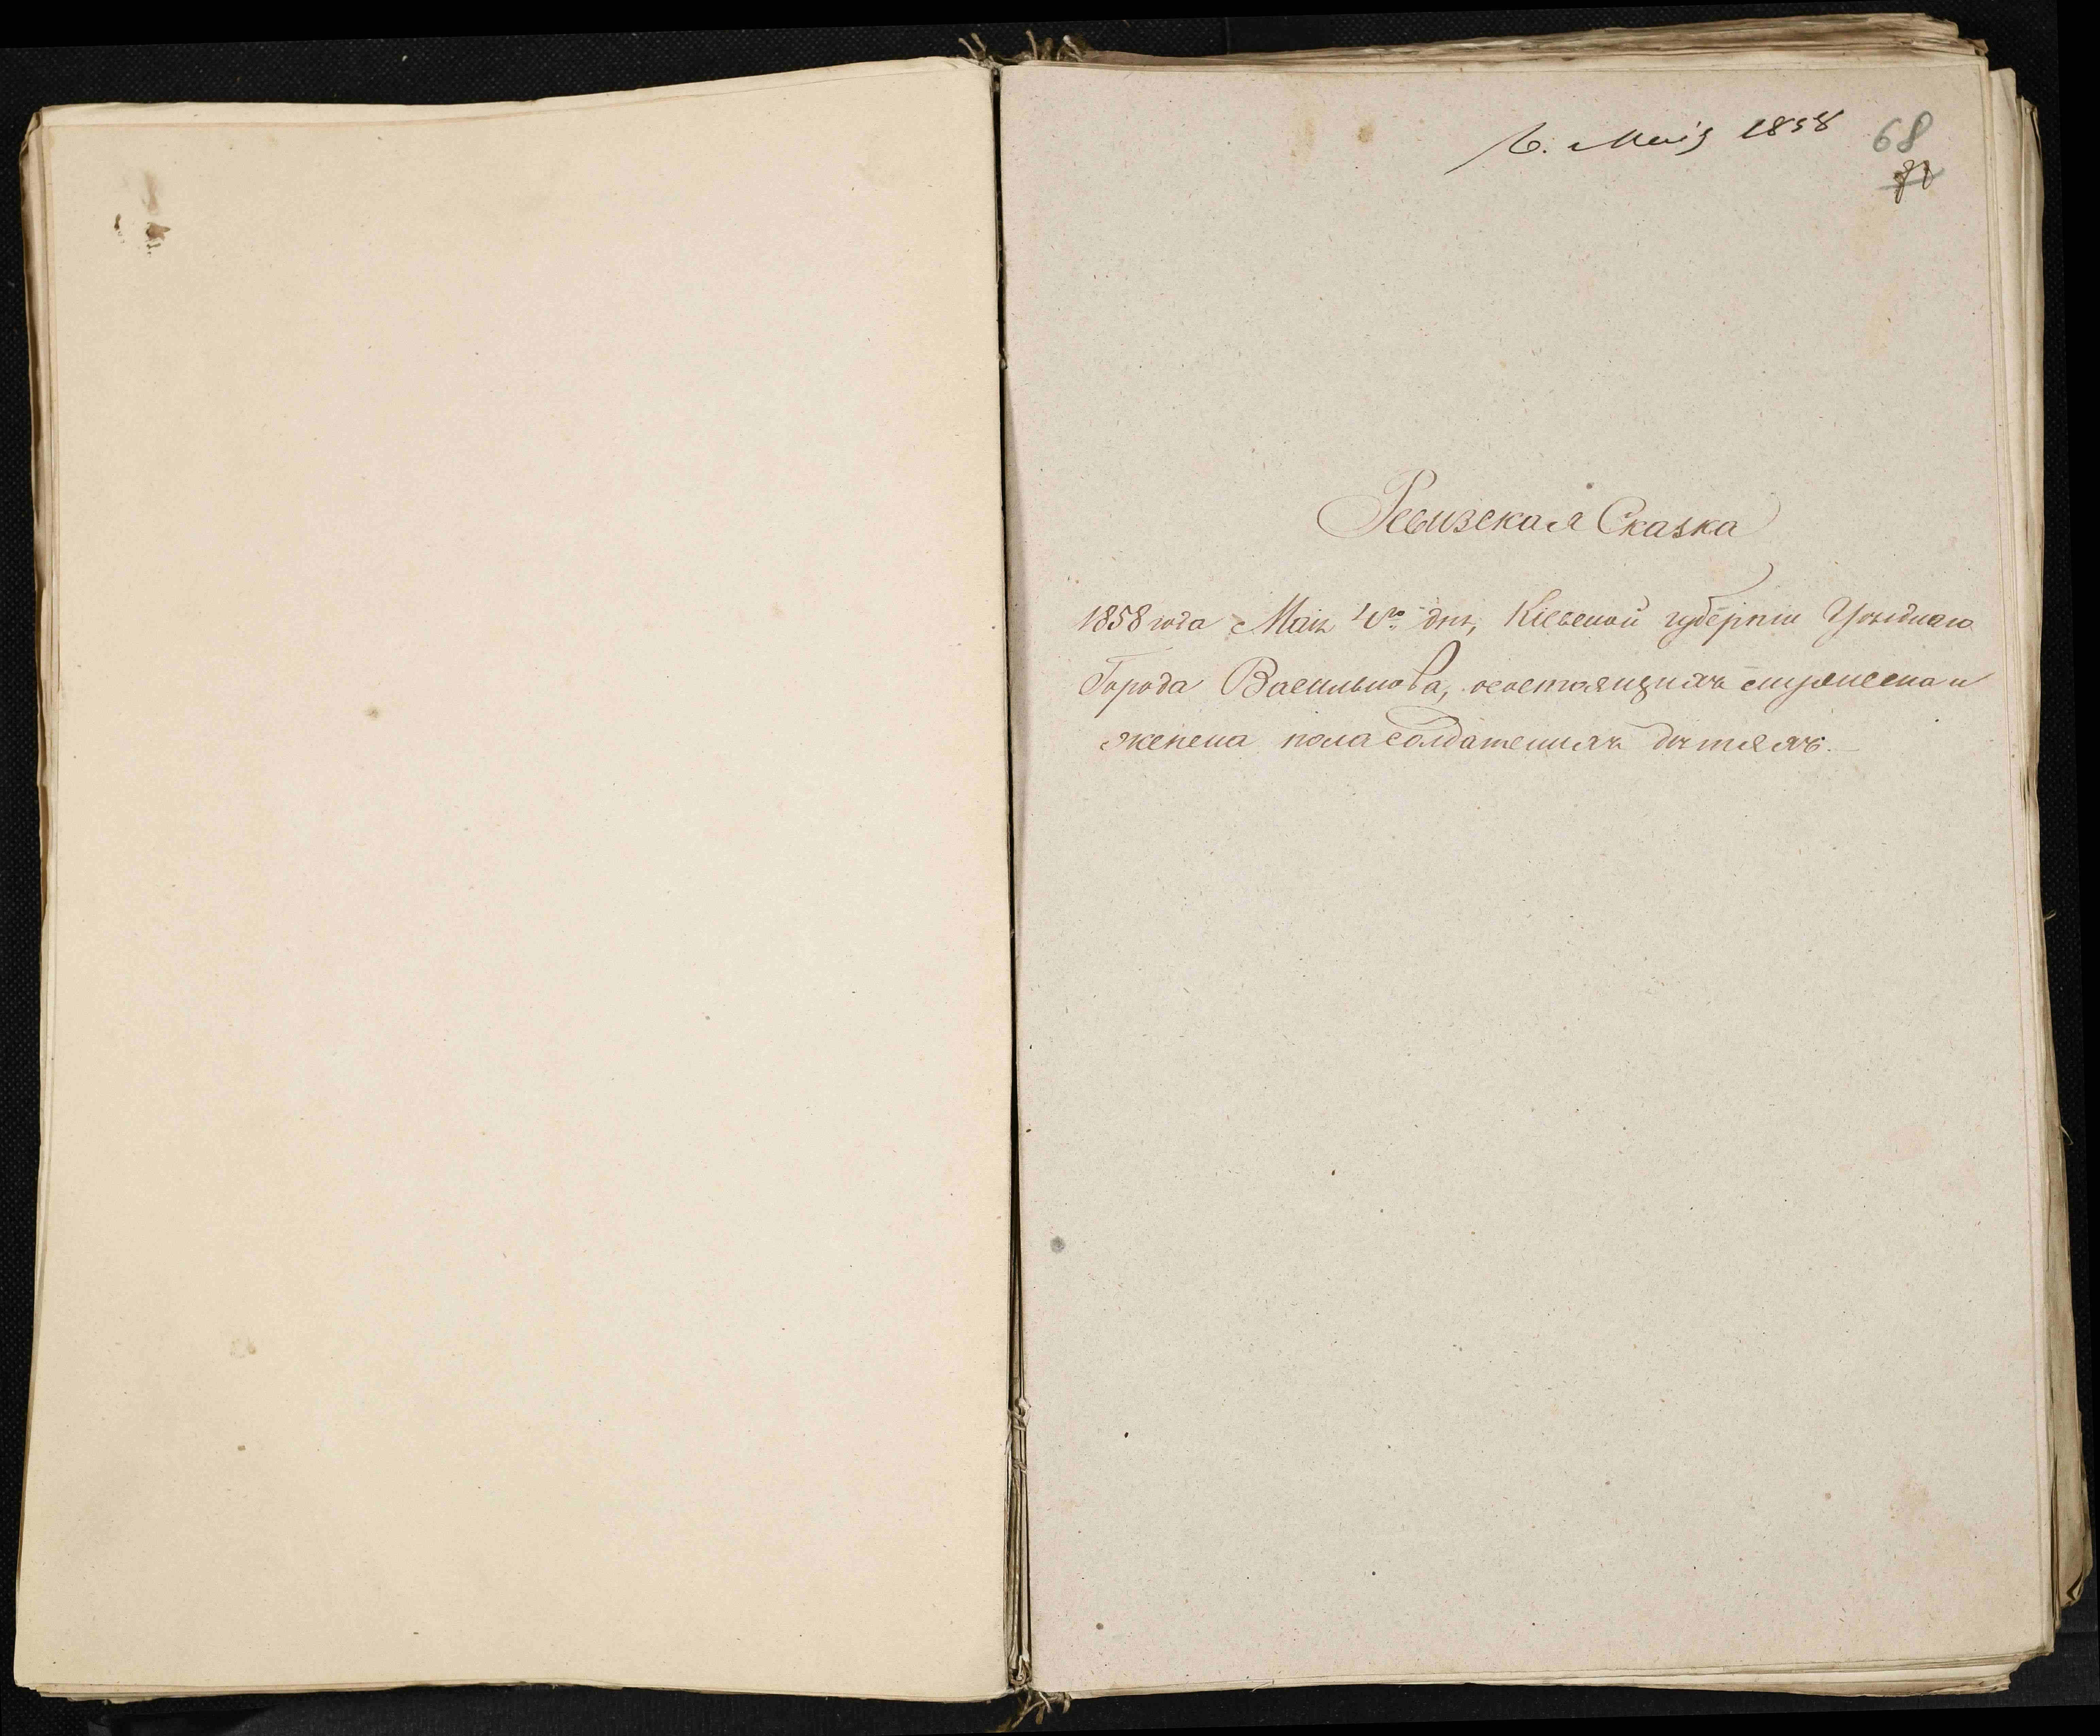 6. Маія 1858 68
Ревизская Сказка
1858 года Маія дня, Кіевской губерніи Уѣзднаго
Города Василькова, о состоящихъ мужеска и
женска пола солдатскихъ дѣтяхъ.